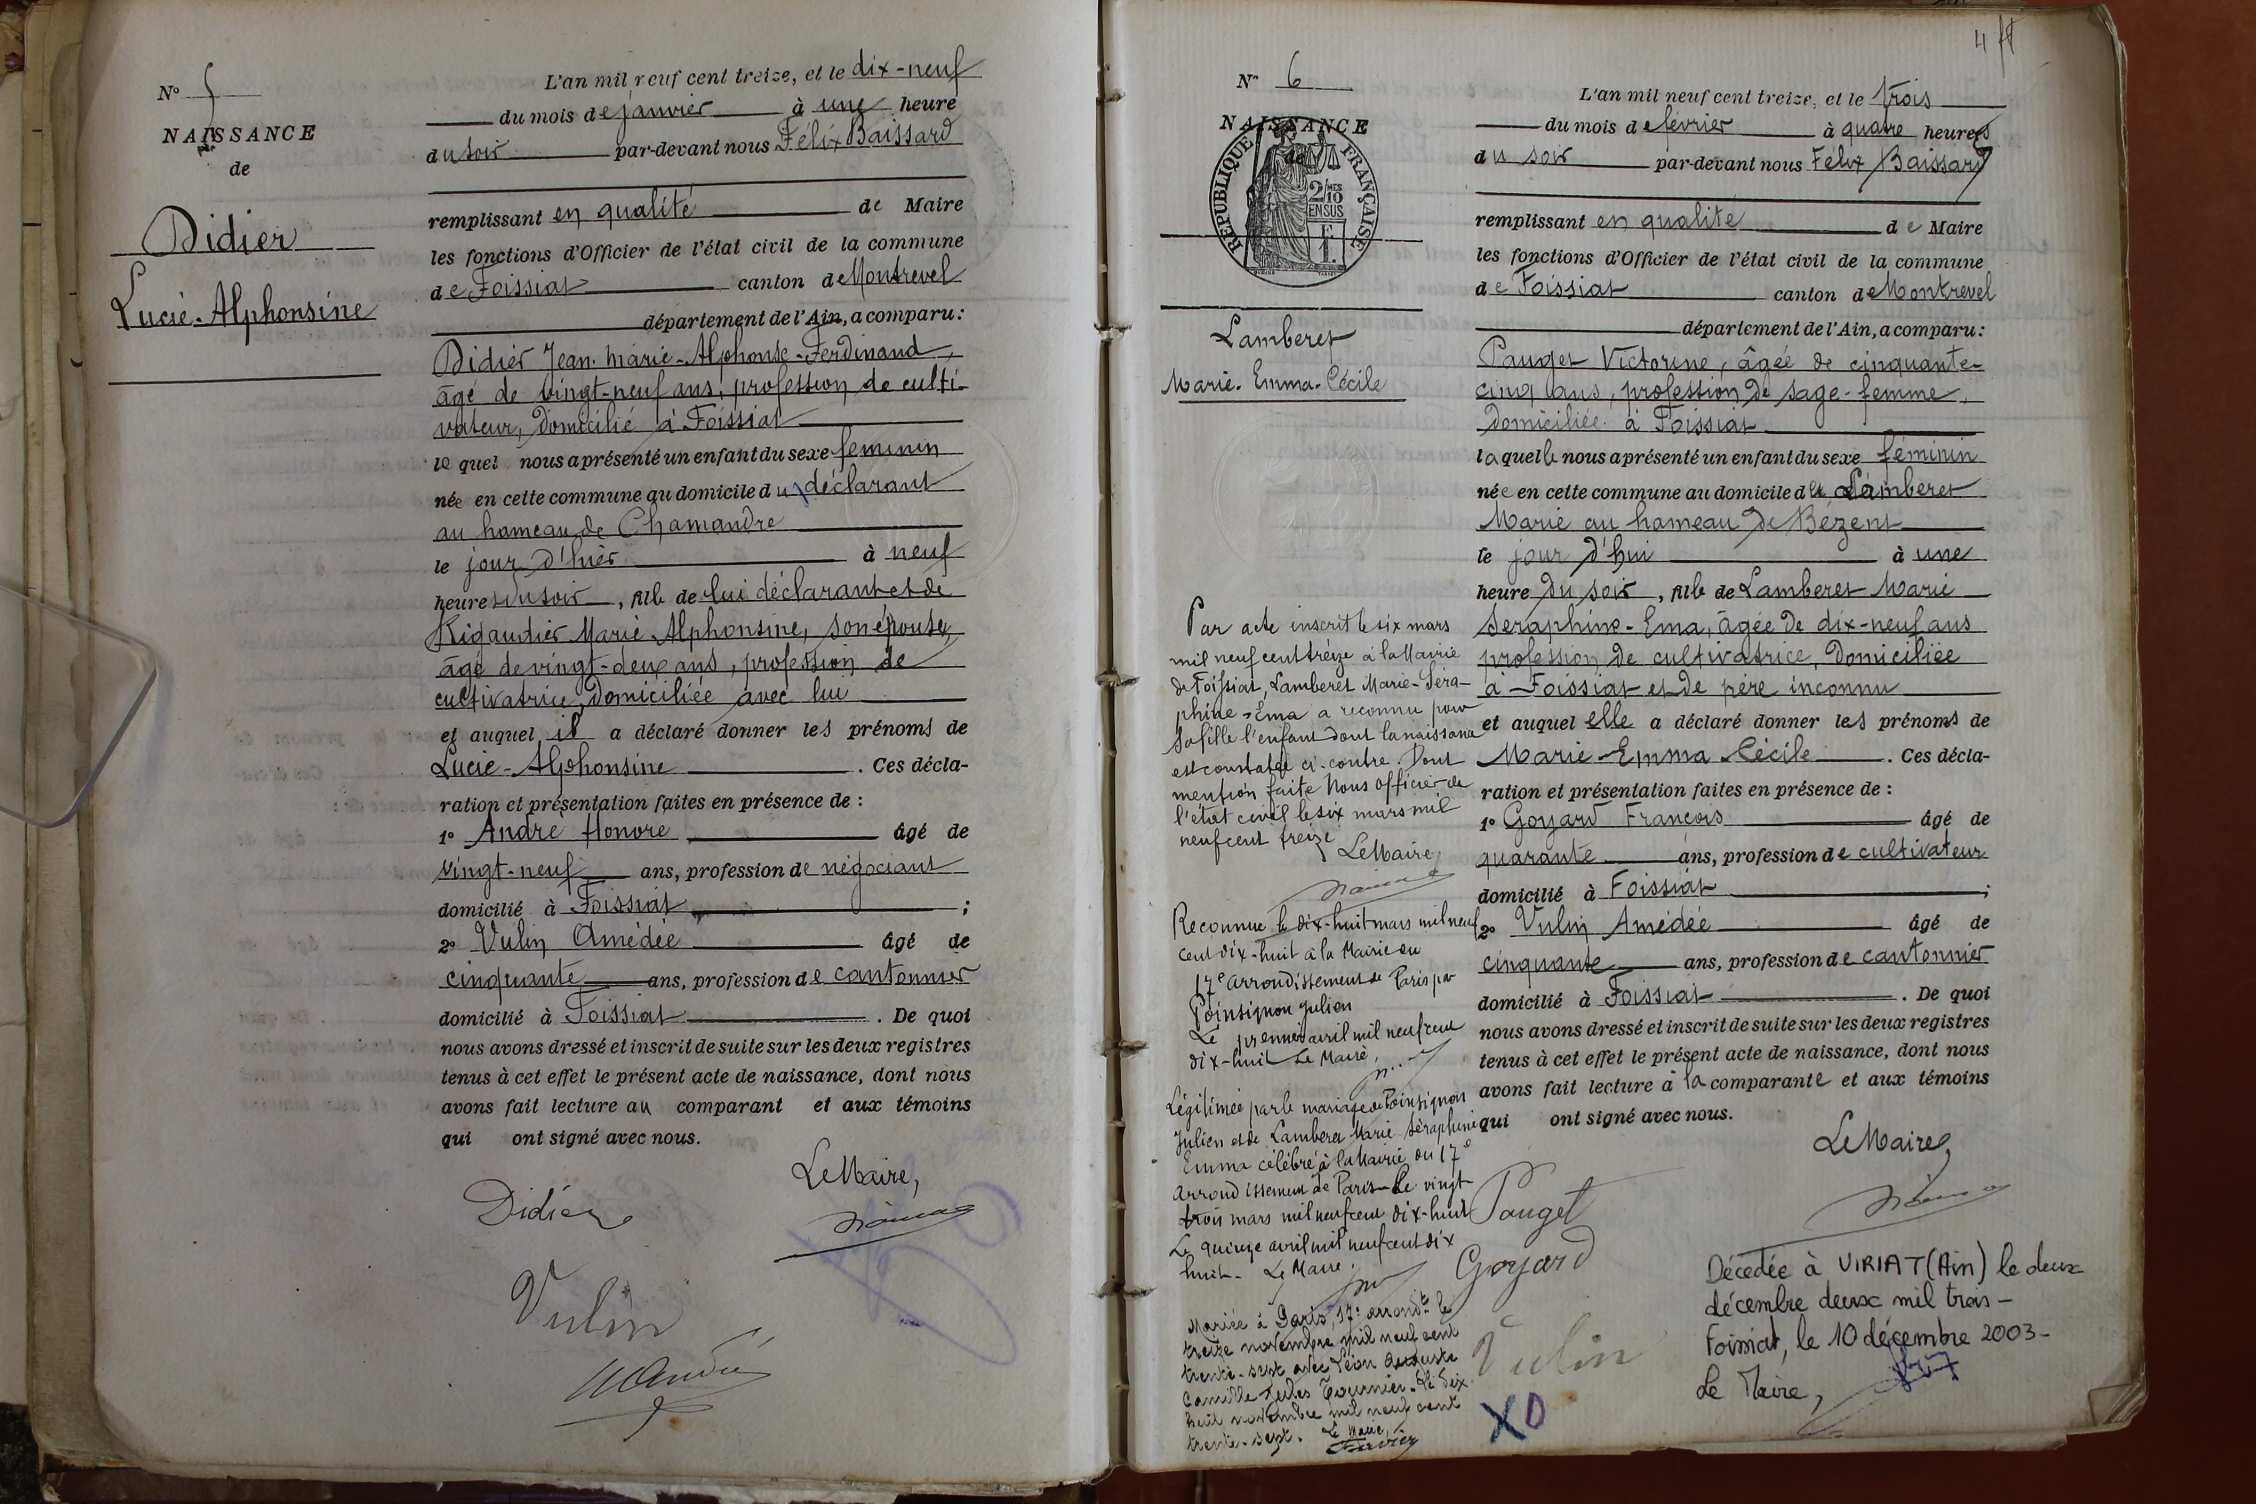 N° 5
NAISSANCE
de
Didier
Lucie-Alphonsine
L'an mil neuf cent treize, et le dix-neuf
du mois de janvier à une heure
du soir par-devant nous Félix Baissard
remplissant en qualité de Maire
les fonctions d'Officier de l'état civil de la commune
de Foissiat canton de Montrevel
département de l'Ain, a comparu :
Didier Jean-Marie-Alphonse-Ferdinand,
âgé de vingt-neuf ans, profession de culti-
vateur, domicilié à Foissiat
lequel nous a présenté un enfant du sexe féminin
née en cette commune au domicile du déclarant
au hameau de Chamandre
le jour d'hier à neuf
heures du soir, fille de lui déclarant et de
Rigaudier Marie Alphonsine, son épouse,
âgé de vingt-deux ans, profession de
cultivatrice, domiciliée avec lui
et auquel il a déclaré donner les prénoms de
Lucie-Alphonsine. Ces décla-
ration et présentation faites en présence de :
1° André Honoré âgé de
vingt-neuf ans, profession de négociant
domicilié à Foissiat ;
2° Vulin Amédée âgé de
cinquante ans, profession de cantonnier
domicilié à Foissiat. De quoi
nous avons dressé et inscrit de suite sur les deux registres
tenus à cet effet le présent acte de naissance, dont nous
avons fait lecture au comparant et aux témoins
qui ont signé avec nous.
Le Maire,
Didier
Vulin
H André
4
N° 6
NAISSANCE
de
RÉPUBLIQUE FRANÇAISE
2/10MES
EN SUS
1F.
Lamberet
Marie-Emma-Cécile
Par acte inscrit le six mars
mil neuf cent treize à la Mairie
de Foissiat, Lamberet Marie-Séra-
phine-Ema a reconnu pour
sa fille l'enfant dont la naissance
est constatée ci-contre. Dont
mention faite Nous officier de
l'état civil le six mars mil
neuf cent treize
Le Maire,
Reconnue le dix-huit mars mil neuf
cent dix-huit à la Mairie du
17e arrondissement de Paris par
Poinsignon Julien
Le premier avril mil neuf cent
dix-huit Le Maire,
Légitimée par le mariage de Poinsignon
Julien et de Lamberet Marie Séraphine
Emma célébré à la Mairie du 17e
arrondissement de Paris le vingt
trois mars mil neuf cent dix-huit
Le quinze avril mil neuf cent dix
huit - Le Maire.
Mariée à Paris, 17e arrondt le
treize novembre mil neuf cent
trente-sept avec Léon Auguste
Camille Jules Tournier. Le dix
huit novembre mil neuf cent
trente-sept. Le Maire,
L'an mil neuf cent treize, et le trois
du mois de février à quatre heures
du soir par-devant nous Félix Baissard
remplissant en qualité de Maire
les fonctions d'Officier de l'état civil de la commune
de Foissiat canton de Montrevel
département de l'Ain, a comparu :
Pauget Victorine, âgée de cinquante-
cinq ans, profession de sage-femme,
domiciliée à Foissiat
laquelle nous a présenté un enfant du sexe féminin
née en cette commune au domicile de Lamberet
Marie au hameau de Bézent
le jour d'hui à une
heure du soir, fille de Lamberet Marie
Séraphine-Ema, âgée de dix-neuf ans
profession de cultivatrice, domiciliée
à Foissiat et de père inconnu
et auquel elle a déclaré donner les prénoms de
Marie-Emma Cécile. Ces décla-
ration et présentation faites en présence de :
1° Goyard François âgé de
quarante ans, profession de cultivateur
domicilié à Foissiat ;
2° Vulin Amédée âgé de
cinquante ans, profession de cantonnier
domicilié à Foissiat. De quoi
nous avons dressé et inscrit de suite sur les deux registres
tenus à cet effet le présent acte de naissance, dont nous
avons fait lecture à la comparante et aux témoins
qui ont signé avec nous.
Le Maire,
Pauget
Goyard
Vulin
XD
Décédée à VIRIAT (Ain) le deux
décembre deux mil trois -
Foissiat, le 10 décembre 2003 -
Le Maire,